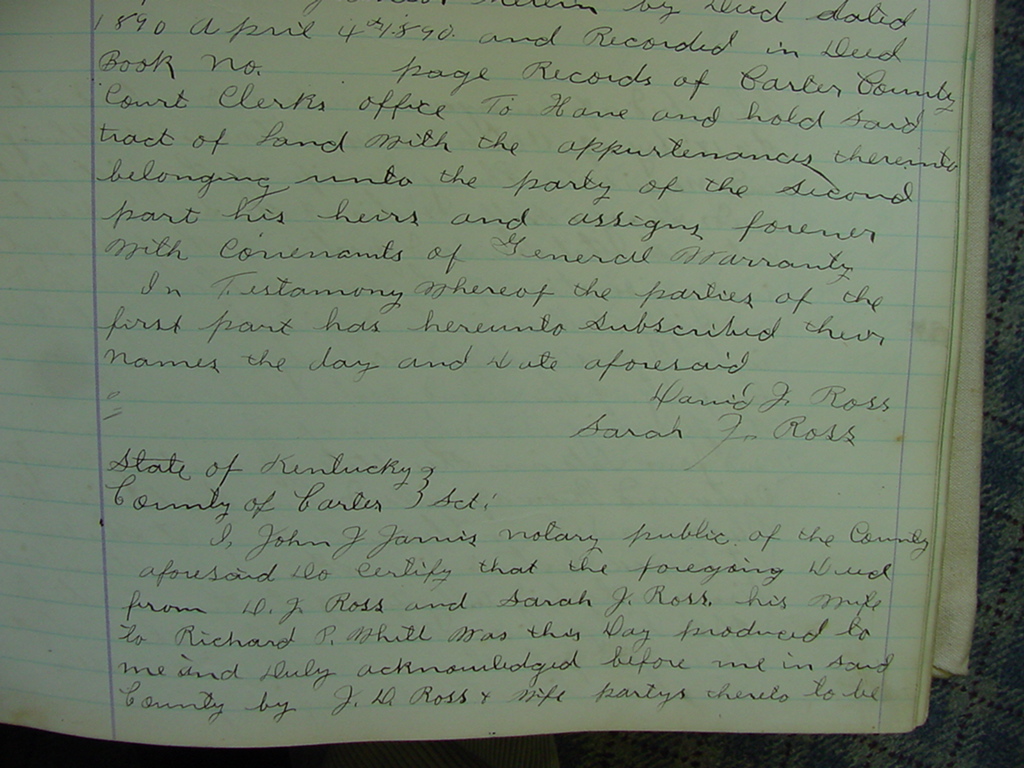 therein by Deed dated
1890 April 4th 1890. and Recorded in Deed
Book No. page Records of Carter County
Court Clerks office To Have and hold said
tract of Land With the appurtenances thereunto
belonging unto the party of the second
part his heirs and assigns forever
With Covenants of General Warranty
In Testamony Whereof the parties of the
first part has hereunto Subscribed their
names the day and Date aforesaid
David J. Ross
Sarah J. Ross
State of Kentucky }
County of Carter } Sct:
I, John J Jarvis notary public of the County
aforesaid Do Certify that the foregoing Deed
from D. J. Ross and Sarah J. Ross. his Wife
to Richard P. Whitt Was this Day produced to
me and Duly acknowledged before me in said
County by J. D. Ross & Wife partys thereto to be